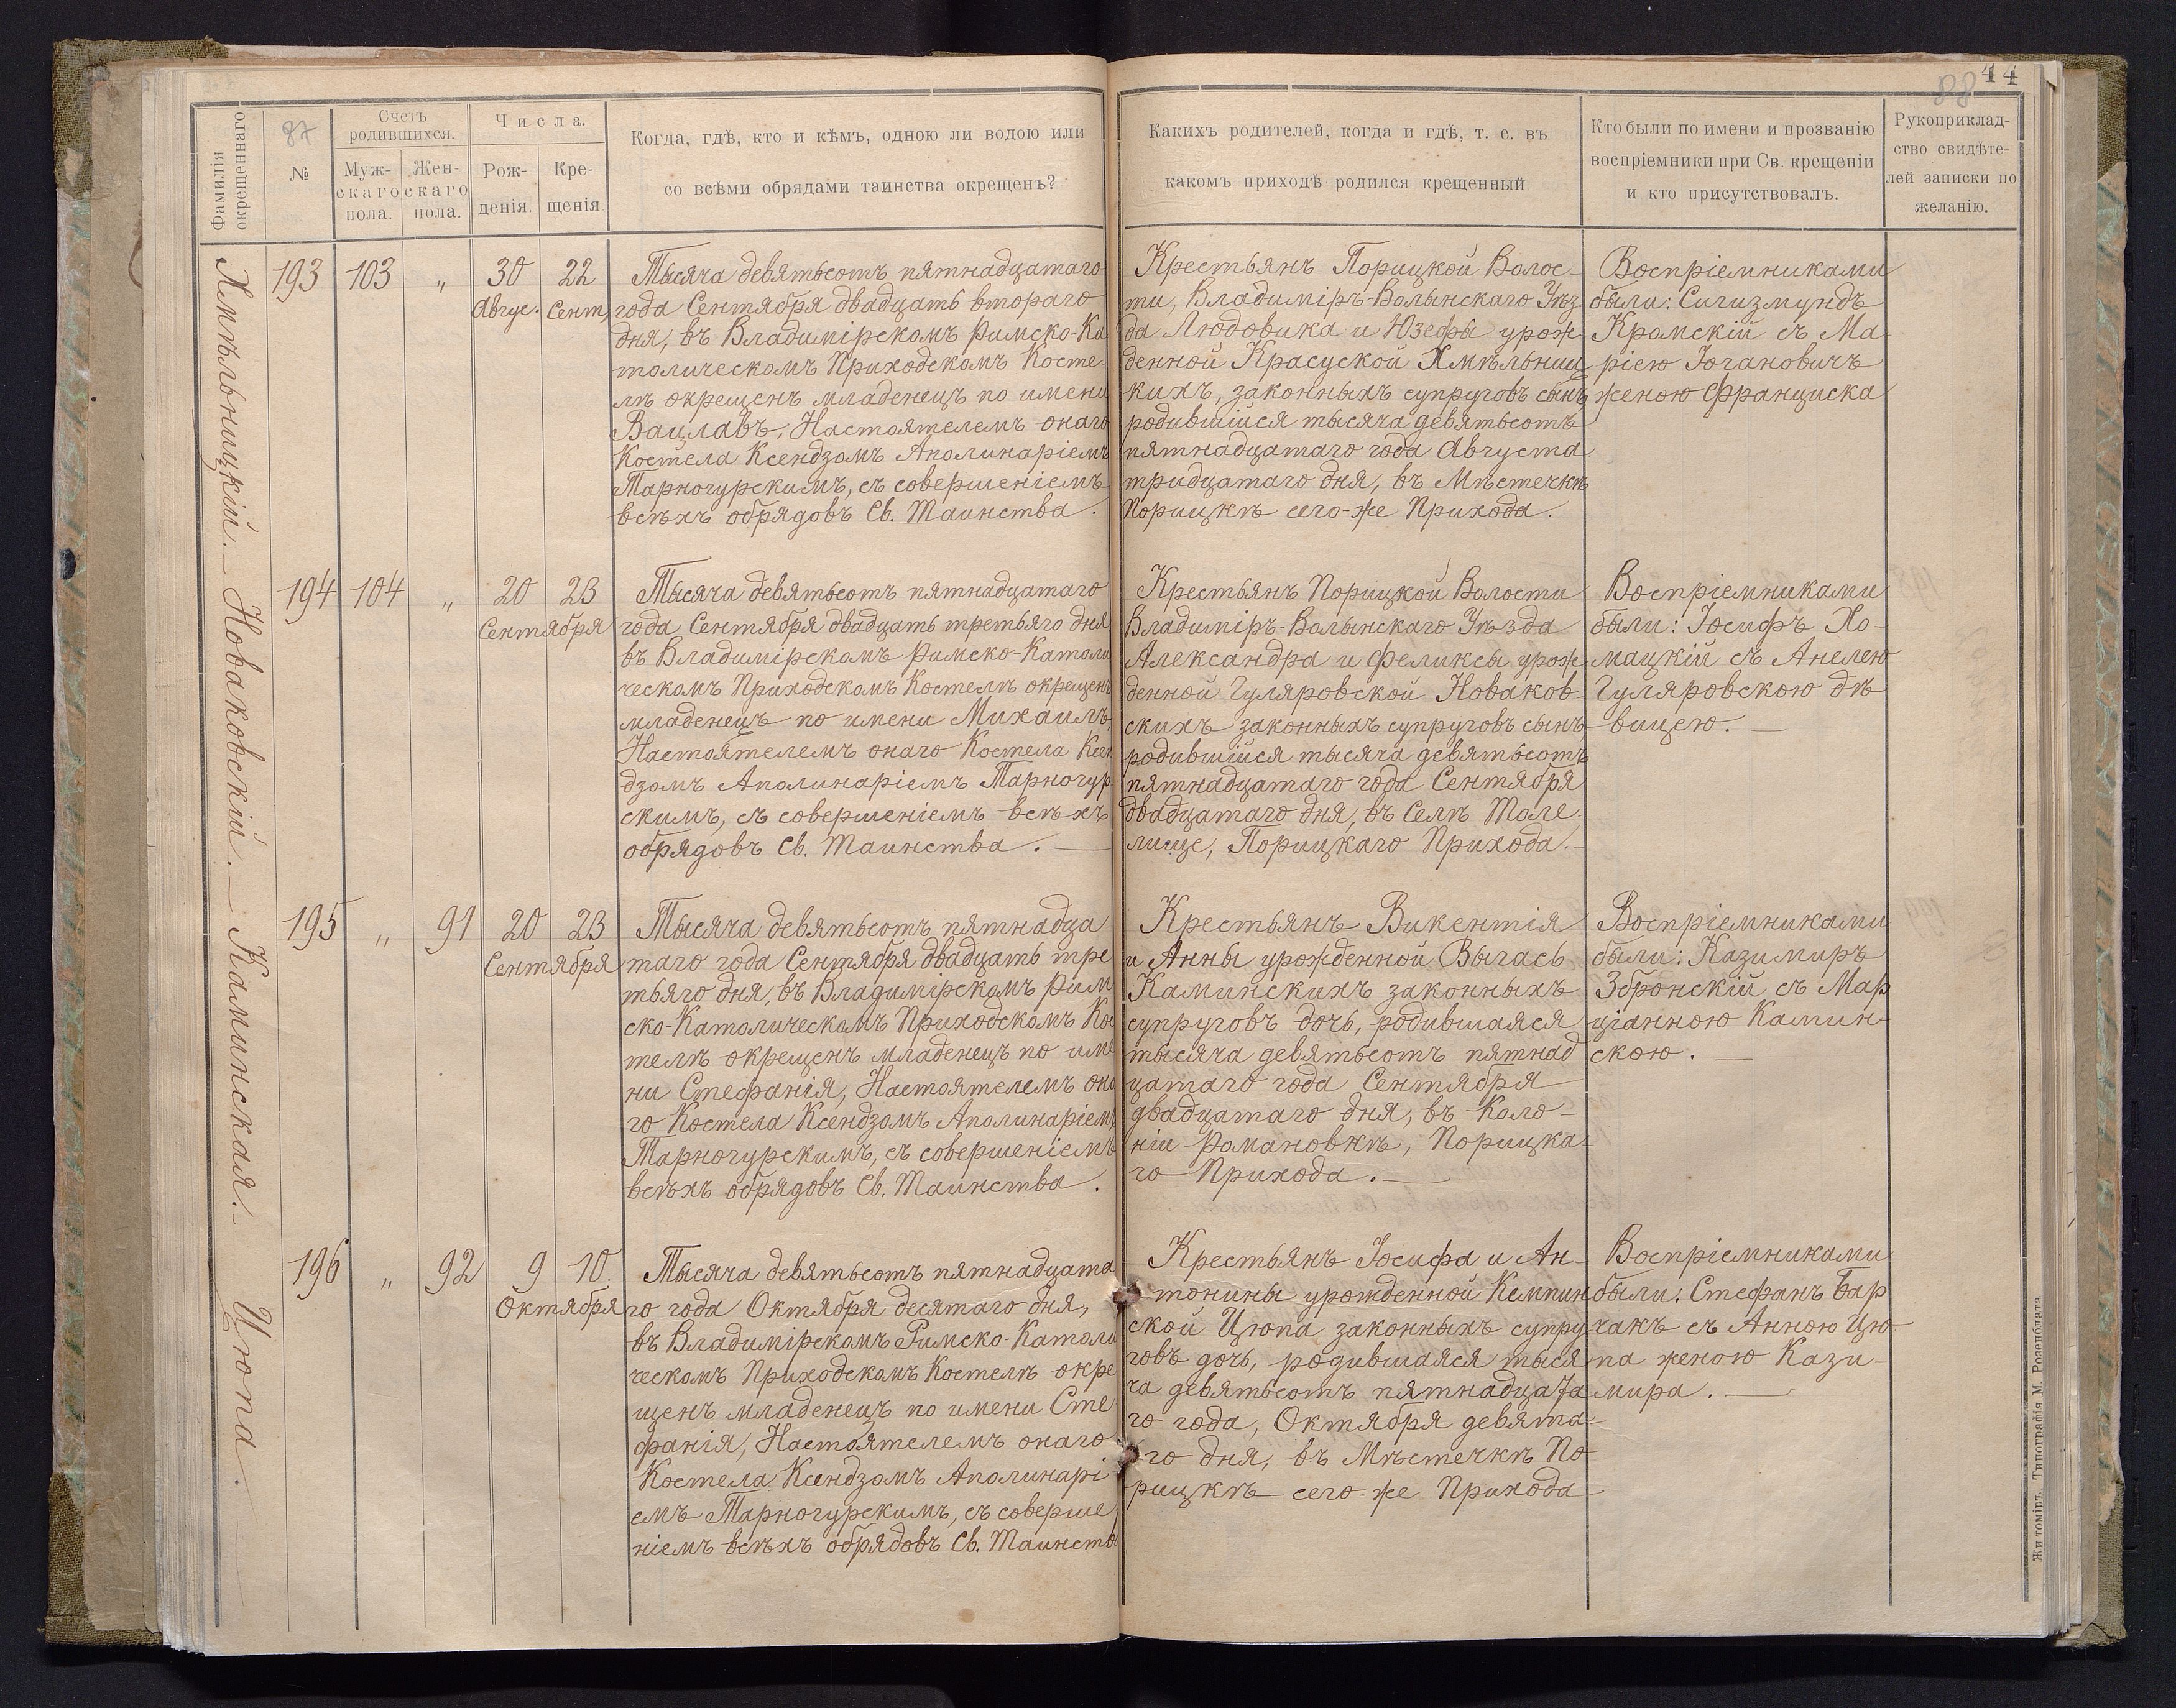 44
88
87
Фамилія окрещеннаго
№
Счетъ родившихся.
Муж-
скаго
пола.
Жен-
скаго
пола.
Числа.
Рож-
денія.
Кре-
щенія
Когда, гдѣ, кто и кѣмъ, одною ли водою или
со всѣми обрядами таинства окрещенъ?
Какихъ родителей, когда и гдѣ, т. е. въ
какомъ приходѣ родился крещенный
Кто были по имени и прозванію
воспріемники при Св. крещеніи
и кто присутствовалъ.
Рукоприклад-
ство свидѣте-
лей записки по
желанію.
Хмѣльницкій.
193 103 „ 30 22
Авгус. Сент.
Тысяча девятьсотъ пятнадцатаго
года Сентября двадцать втораго
дня, въ Владимірскомъ Римско-Ка
толическомъ Приходскомъ Косте-
лѣ окрещенъ младенецъ по имени
Вацлавъ, Настоятелемъ онаго
Костела Ксендзомъ Аполинаріемъ
Тарногурскимъ, съ совершеніемъ
всѣхъ обрядовъ Св. Таинства.
Крестьянъ Порицкой Волос-
ти, Владиміръ-Волынскаго Уѣз
да Людовика и Юзефы урож-
денной Красуской Хмѣльниц
кихъ, законныхъ супруговъ сынъ,
родившійся тысяча девятьсотъ
пятнадцатаго года Августа
тридцатаго дня, въ Мѣстечкѣ
Порицкѣ сего-же Прихода.
Воспріемниками
были: Сигизмундъ
Крамскій съ Ма-
ріею Іогановичъ
женою Франциска
Новаковскій.
194 104 „ 20 23
Сентября
Тысяча девятьсотъ пятнадцатаго
года Сентября двадцать третьяго дня,
въ Владимірскомъ Римско-Католи
ческомъ Приходскомъ Костелѣ окрещенъ
младенецъ по имени Михаилъ,
Настоятелемъ онаго Костела Ксен
дзомъ Аполинаріемъ Тарногур
скимъ, съ совершеніемъ всѣхъ
обрядовъ Св. Таинства. —
Крестьянъ Порицкой Волости
Владиміръ-Волынскаго Уѣзда
Александра и Феликсы урож
денной Гуляровской Новаков-
скихъ законныхъ супруговъ сынъ
родившійся тысяча девятьсотъ
пятнадцатаго года Сентября
двадцатаго дня, въ Селѣ Топе-
лище, Порицкаго Прихода.
Воспріемниками
были: Іосифъ Хо-
мацкій съ Анелею
Гуляровскою дѣ
вицею. —
Каминская.
195 „ 91 20 23
Сентября
Тысяча девятьсотъ пятнадца
таго года Сентября двадцать тре
тьяго дня, въ Владимірскомъ Рим
ско-Католическомъ Приходскомъ Кос
телѣ окрещенъ младенецъ по име
ни Стефанія, Настоятелемъ она
го Костела Ксендзомъ Аполинаріемъ
Тарногурскимъ, съ совершеніемъ
всѣхъ обрядовъ Св. Таинства.
Крестьянъ Викентія
и Анны урожденной Вычась
Каминскихъ законныхъ
супруговъ дочь, родившаяся
тысяча девятьсотъ пятнад
цатаго года Сентября
двадцатаго дня, въ Коло-
ніи Романовкѣ, Порицка-
го Прихода. —
Воспріемниками
были: Казимиръ
Збронскій съ Мар
ціанною Камин-
скою. —
Цюпа.
196 „ 92 9 10.
Октября
Тысяча девятьсотъ пятнадцата
го года Октября десятаго дня,
въ Владимірскомъ Римско-Католи
ческомъ Приходскомъ Костелѣ окре
щенъ младенецъ по имени Сте
фанія, Настоятелемъ онаго
Костела Ксендзомъ Аполинарі
емъ Тарногурскимъ, съ соверше
ніемъ всѣхъ обрядовъ Св. Таинства
Крестьянъ Іосифа и Ан-
тонины урожденной Кемпин
ской Цюпа законныхъ супру
говъ дочь, родившаяся тыся
ча девятьсотъ пятнадцата
го года, Октября девята-
го дня, въ Мѣстечкѣ По-
рицкѣ сего-же Прихода
Воспріемниками
были: Стефанъ Бар
чакъ съ Анною Цю-
па женою Кази-
мира. —
Житоміръ. Типографія М. Розенблата